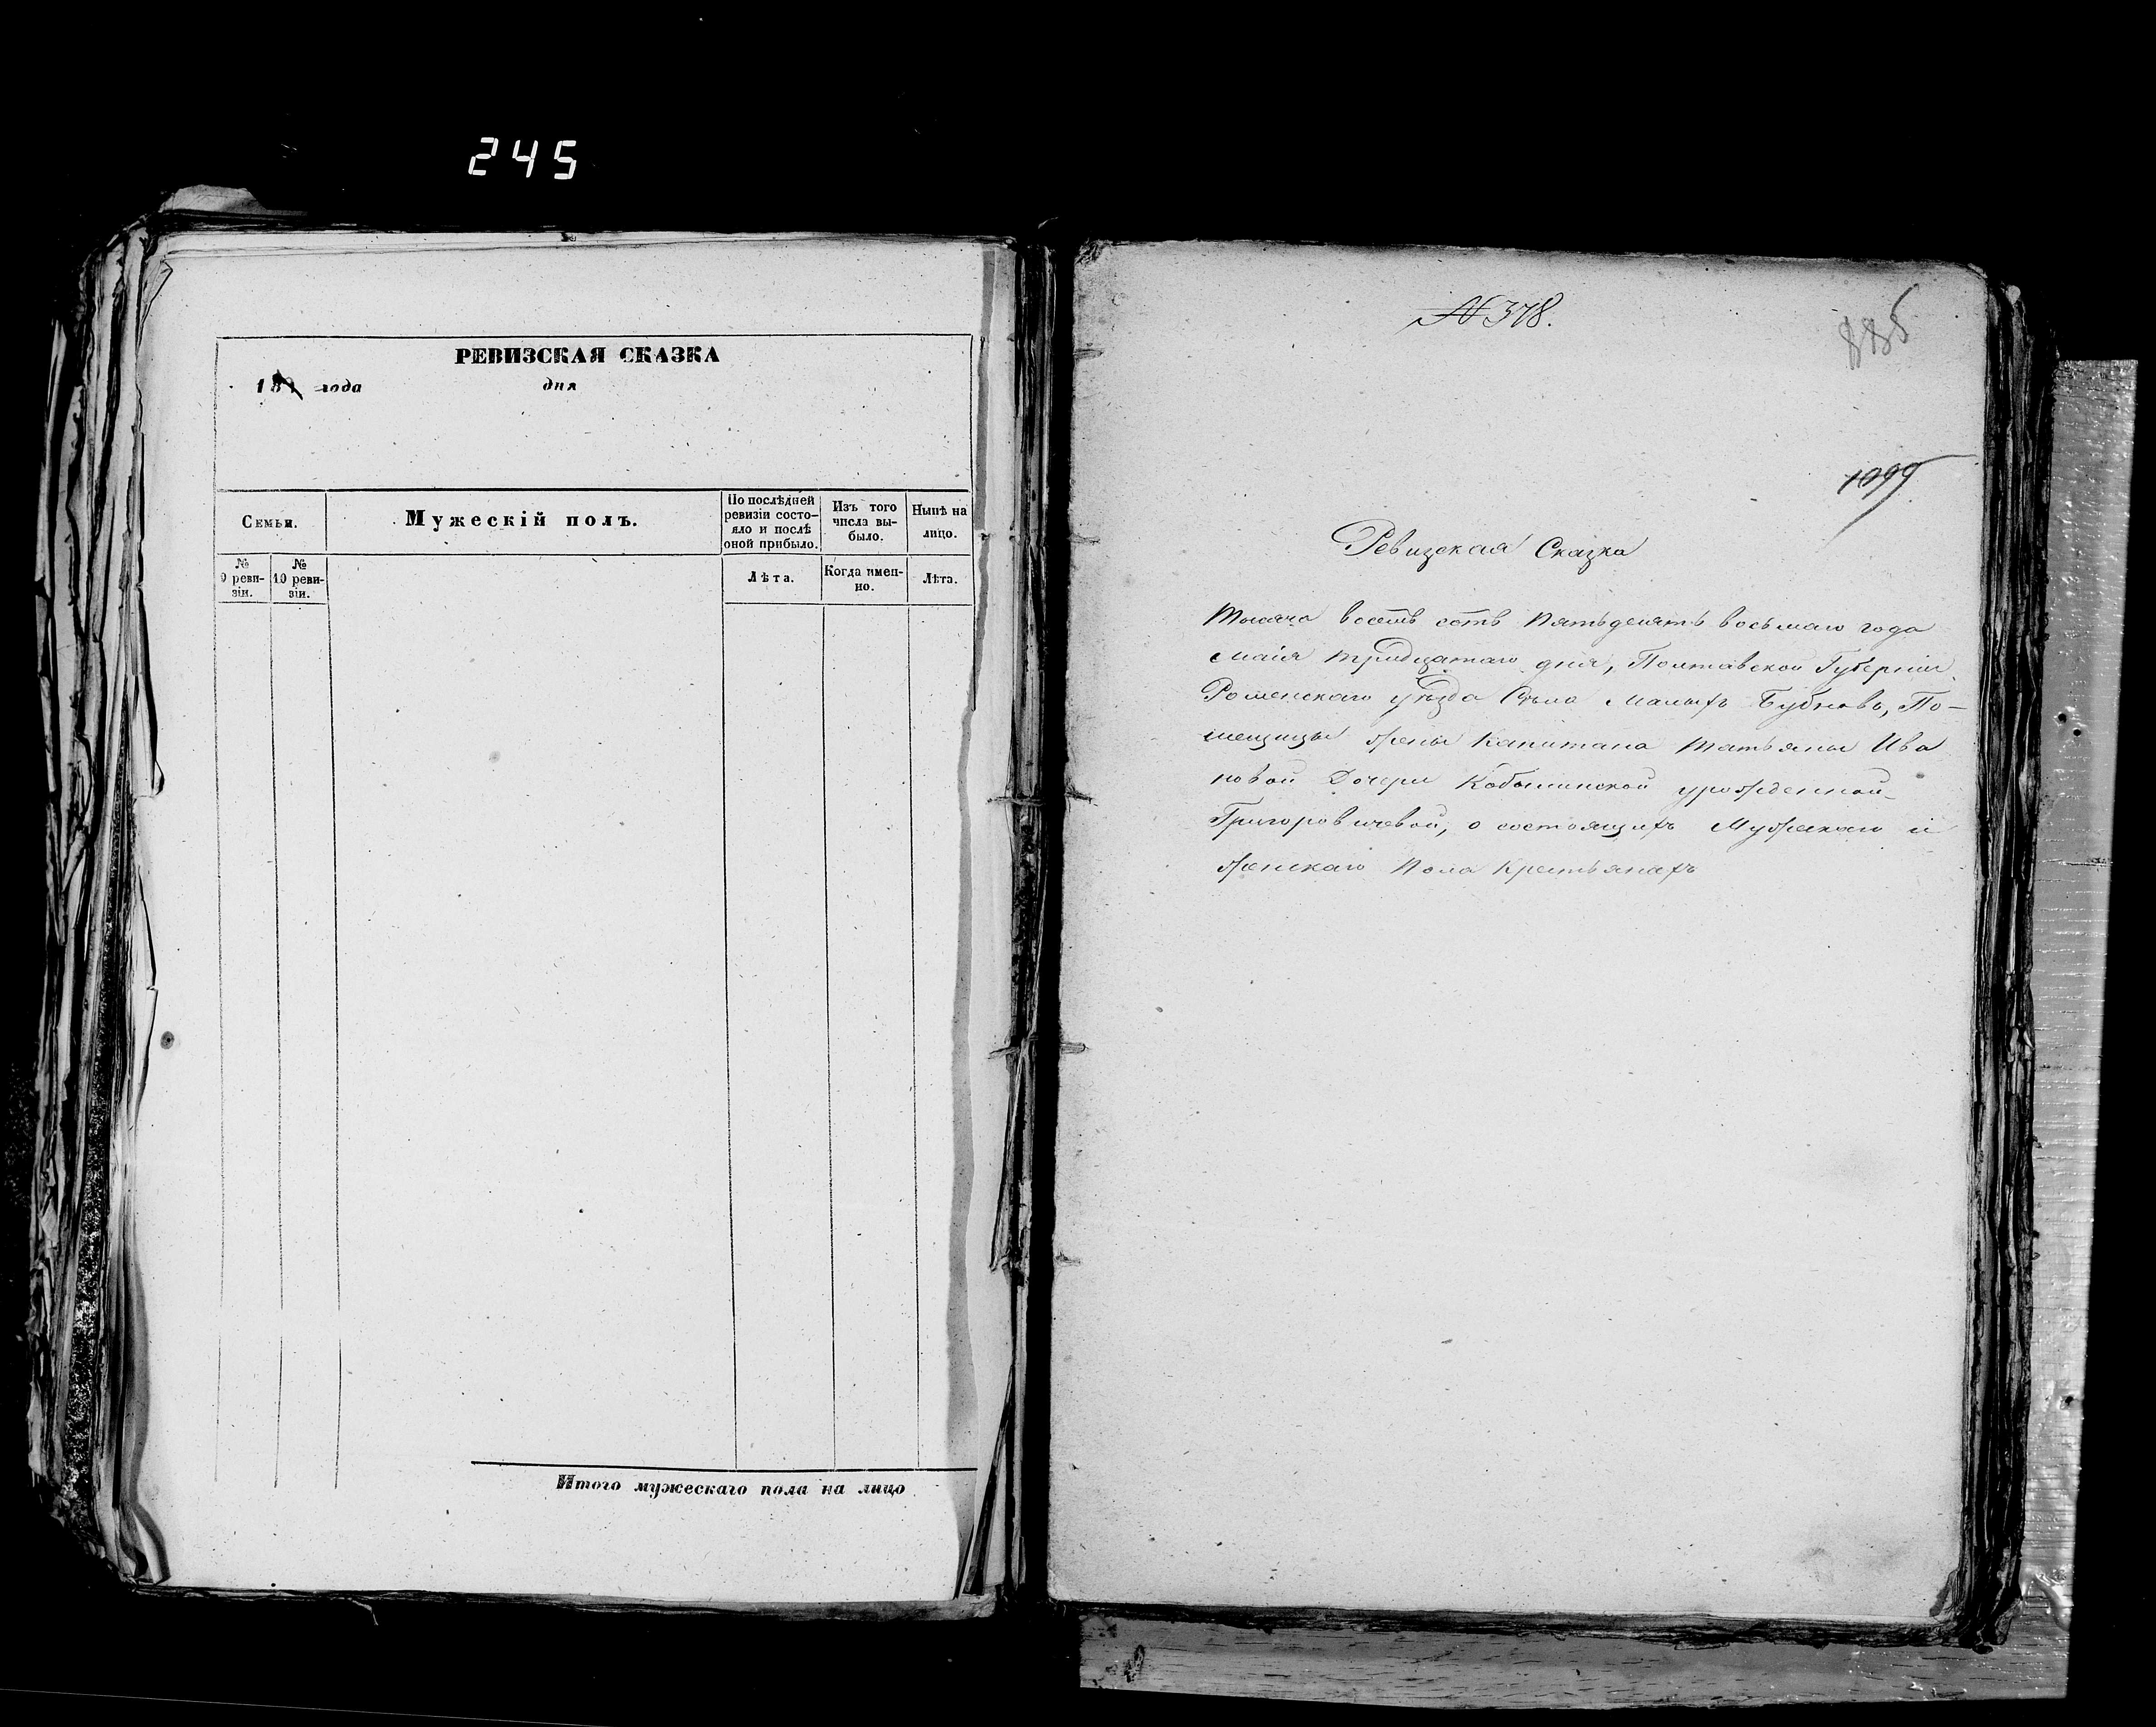 245
РЕВИЗСКАЯ СКАЗКА
года дня
Семьи.
Мужескій полъ.
По послѣдней ревизіи состо-
яло и послѣ оной прибыло.
Изъ того числа вы-
было.
Нынѣ на лицо.
№ 9 реви-
зіи.
№ 10 реви-
зіи.
Лѣта.
Когда имен-
но.
Лѣта.
Итого мужескаго пола на лицо
№ 378.
885
1099
Ревизская Сказка
Тысяча восемь сотъ пятьдесятъ восьмаго года
маія тридцатаго дня, Полтавской Губерніи
Роменскаго уѣзда Села Малыхъ Бубновъ, По-
мещицы жены Капитана Татьяны Ива
новой Дочери Кобылинской урожденной
Григоровичевой, о состоящихъ Мужескаго и
женскаго Пола Крестьянахъ